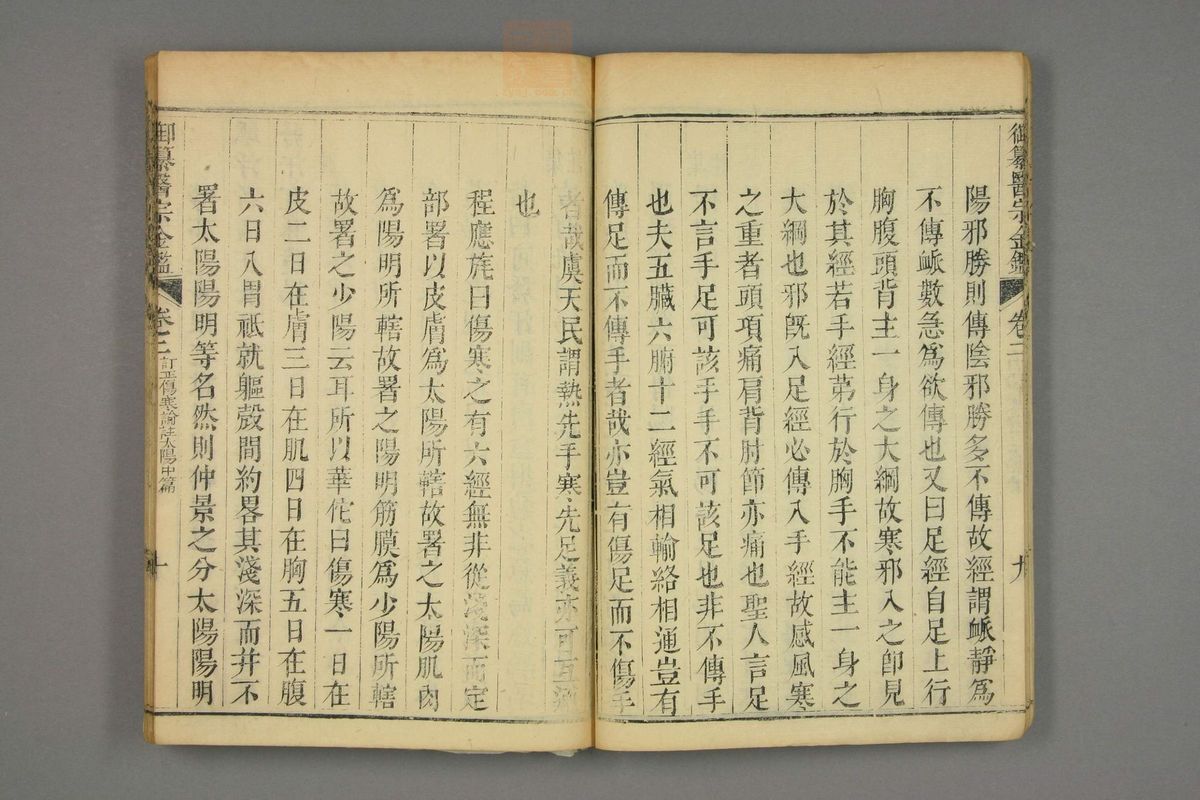 御纂醫宗金鑑 卷二 九
陽邪勝則傳陰邪勝多不傳故經謂衇靜爲
不傳衇數急爲欲傳也又曰足經自足上行
胸腹頭背主一身之大綱故寒邪入之卽見
於其經若手經第行於胸手不能主一身之
大綱也邪旣入足經必傳入手經故感風寒
之重者頭項痛肩背肘節亦痛也聖人言足
不言手足可該手手不可該足也非不傳手
也夫五臟六腑十二經氣相輸絡相通豈有
傳足而不傳手者哉亦豈有傷足而不傷手
者哉虞天民謂熱先手寒先足義亦可互
也
程應旄曰傷寒之有六經無非從淺深而定
部署以皮膚爲太陽所轄故署之太陽肌肉
爲陽明所轄故署之陽明筋膜爲少陽所轄
故署之少陽云耳所以華佗曰傷寒一日在
皮二日在膚三日在肌四日在胸五日在腹
六日入胃祗就軀殼間約畧其淺深而幷不
署太陽陽明等名然則仲景之分太陽陽明
御纂醫宗金鑑 卷之二 訂正傷寒論註太陽中篇 十